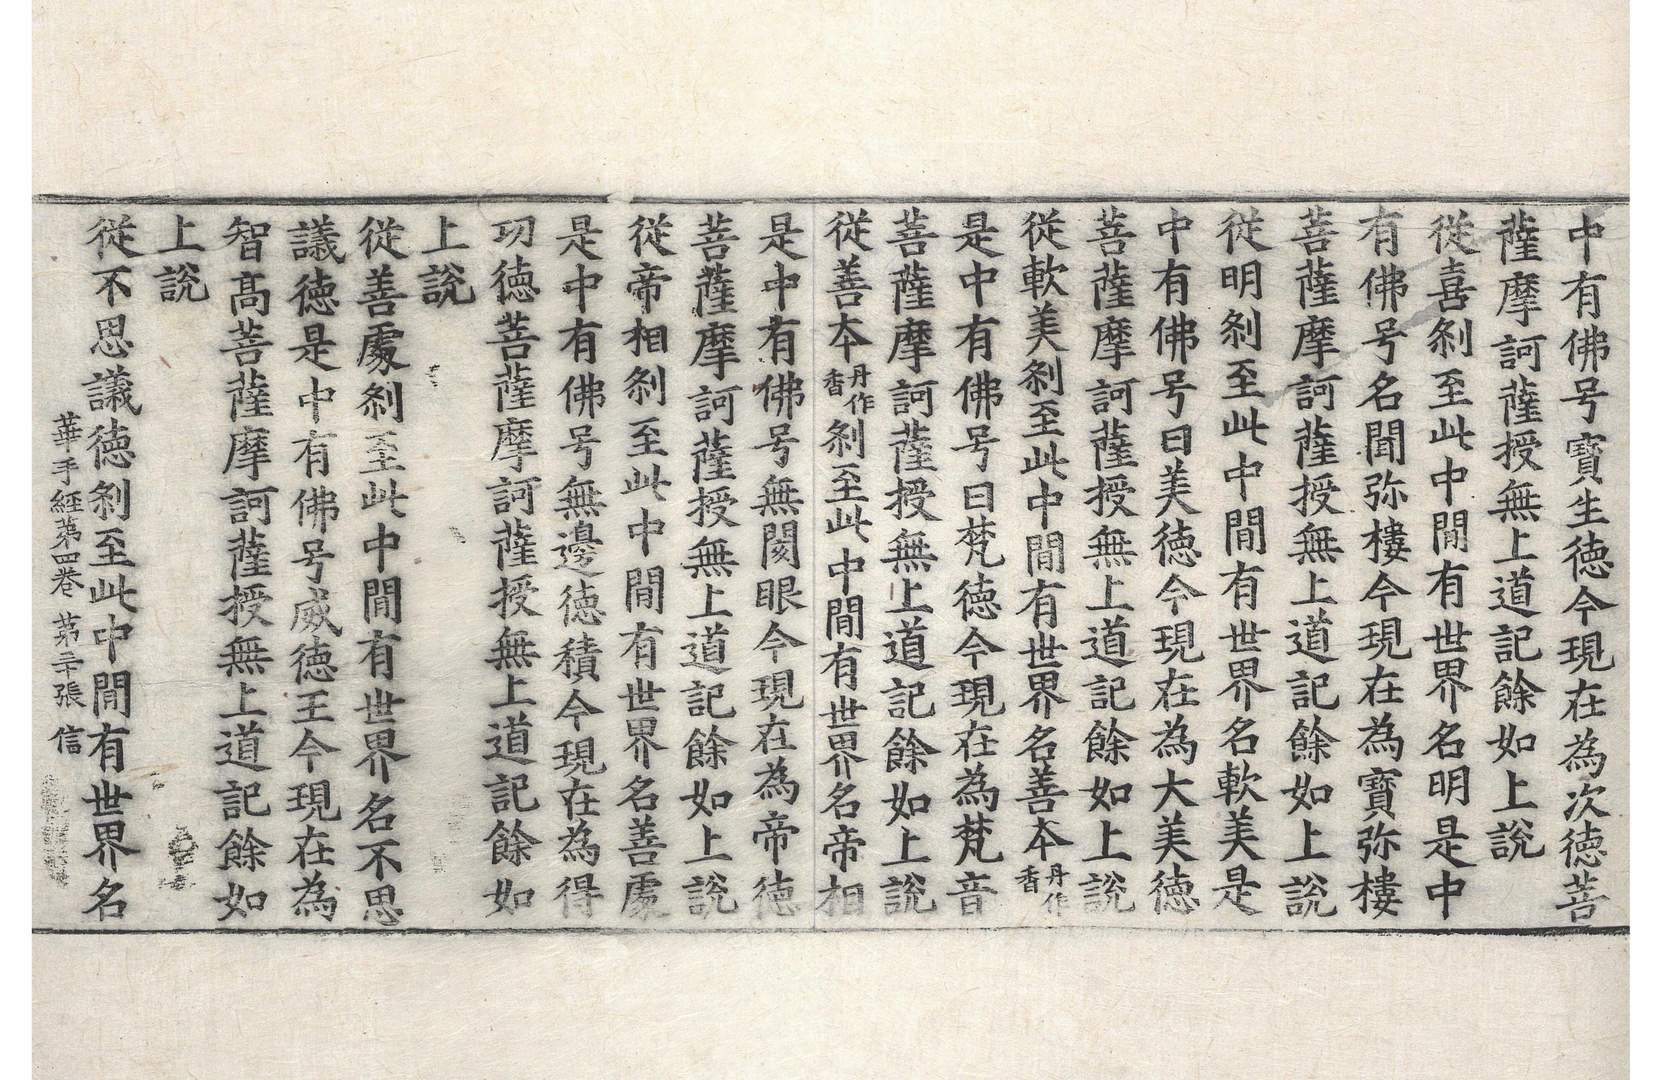 中有佛号寶生德今現在為次德菩
薩摩訶薩授無上道記餘如上說
從喜刹至此中閒有世界名明是中
有佛号名聞弥樓今現在為寶弥樓
菩薩摩訶薩授無上道記餘如上說
從明刹至此中閒有世界名軟美是
中有佛号曰美德今現在為大美德
菩薩摩訶薩授無上道記餘如上說
從軟美刹至此中閒有世界名善本丹作香
是中有佛号曰梵德今現在為梵音
菩薩摩訶薩授無上道記餘如上說
從善本丹作香刹至此中閒有世界名帝相
是中有佛号無閡眼今現在為帝德
菩薩摩訶薩授無上道記餘如上說
從帝相刹至此中閒有世界名善處
是中有佛号無邊德積今現在為得
功德菩薩摩訶薩授無上道記餘如
上說
從善處刹至此中閒有世界名不思
議德是中有佛号威德王今現在為
智高菩薩摩訶薩授無上道記餘如
上說
從不思議德刹至此中閒有世界名
華手經第四卷 第二十張 信